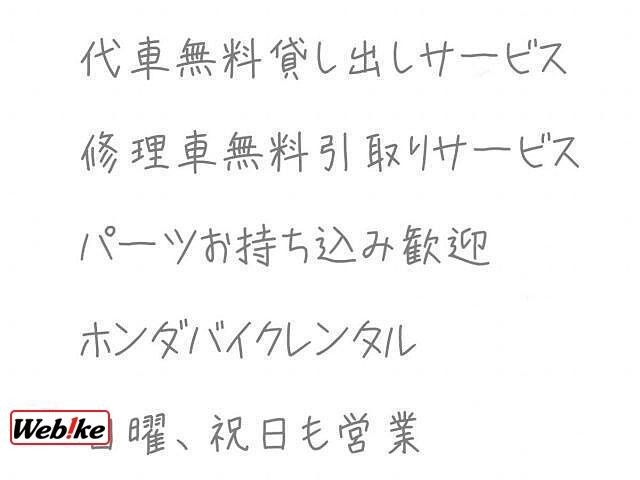 代車無料貸し出しサービス
修理車無料引取りサービス
パーツお持ち込み歓迎
ホンダバイクレンタル
Web!ke 日曜、祝日も営業